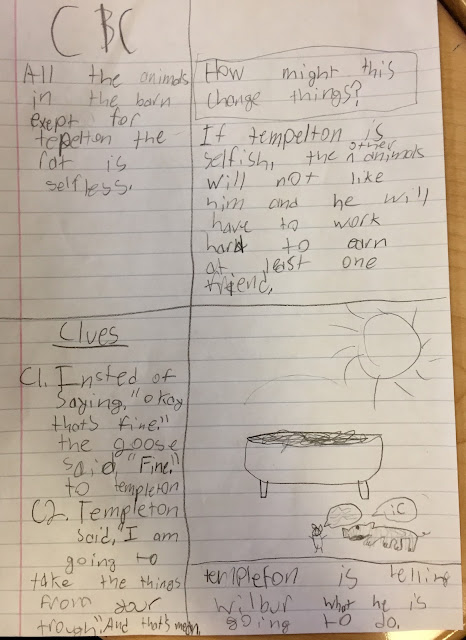 CBC
All the animals
in the barn
exept for
tepelton the
rat is
selfless.
How might this
change things?
If tempelton is
selfish, the other animals
will not like
him and he will
have to work
hard to earn
at least one
friend.
Clues
C1. Insted of
saying, "okay
that's fine."
the goose
said, "Fine."
to templeton
C2. Templeton
said, "I am
going to
take the things
from your
trough". And that's mean.
templeton is telling
wilbur what he is
going to do.